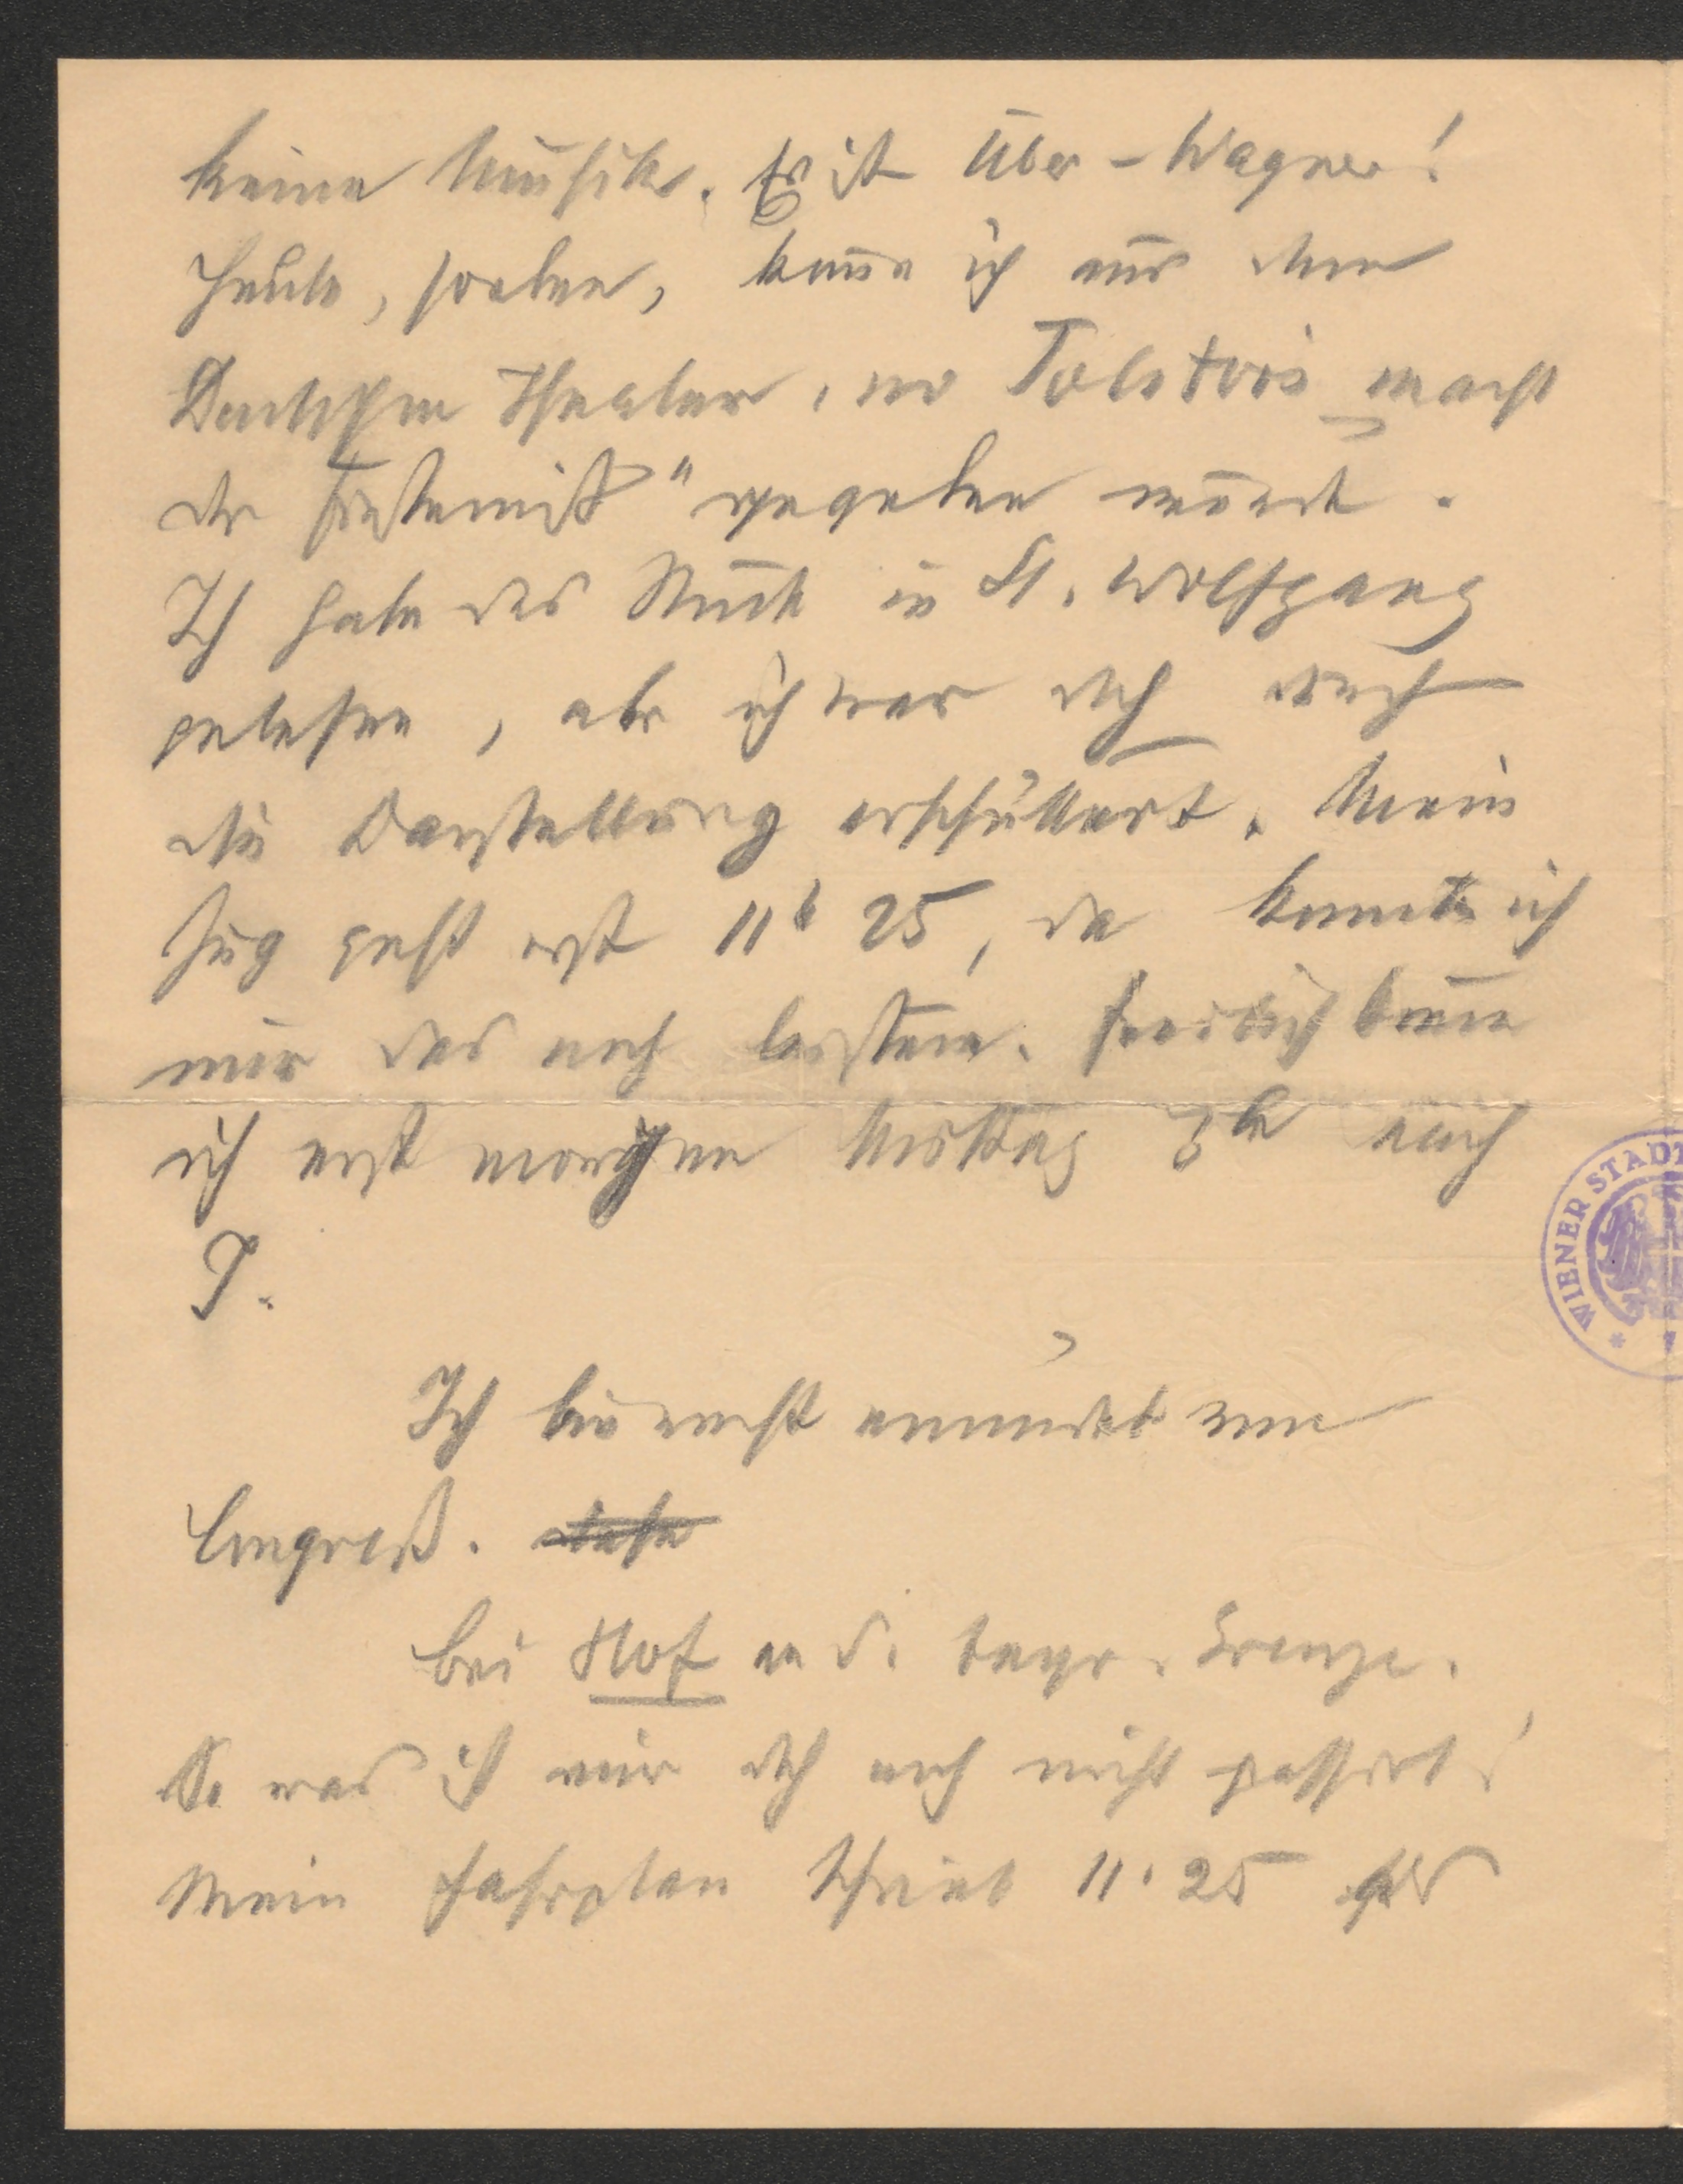 keine Musik. Es ist Über-Wagner!
Heute, soeben, kom̅e ich aus dem
Deutschen Theater, wo Tolstois „Macht
der Finsterniß“ gegeben wurde.
Ich habe das Stück in St. Wolfgang
gelesen, aber ich war doch durch
die Darstellung erschüttert. Mein
Zug geht erst 11h 25, da konnte ich
mir das noch leisten. Freilich kom̅e
ich erst morgen Mittag 3h nach
I.
Ich bin recht ermüdet vom
Congreß.
Bei Hof an d. bayr. Grenze.
So was ist mir doch noch nicht passirt!
Mein Fahrplan schrieb 11.25 als
WIENER STADT